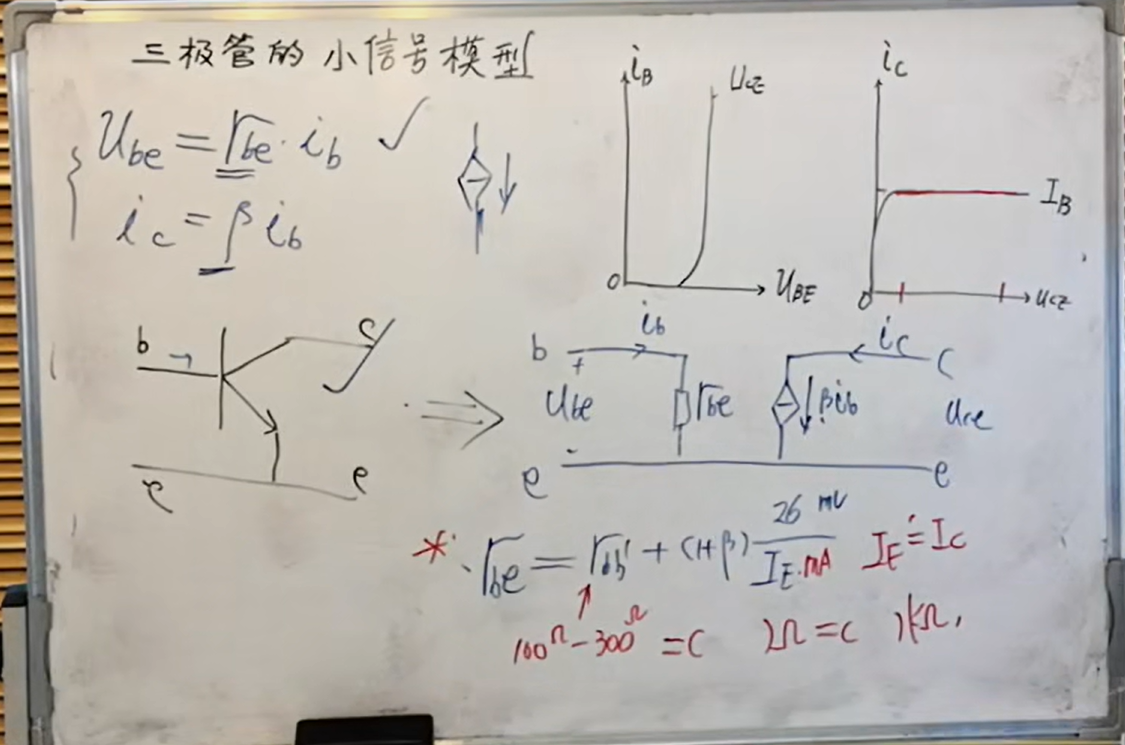 三极管的小信号模型
U_be = r_be · i_b ✓
i_c = β i_b
i_B
U_CE
O
U_BE
i_C
I_B
O
U_CE
b → c
e e
⇒
b i_b i_c C
+ U_be r_be β i_b U_ce
-
e e
* r_be = r_bb' + (1+β) 26 mV / I_E·mA I_E ≐ I_C
100Ω-300Ω =( )Ω =( )kΩ,